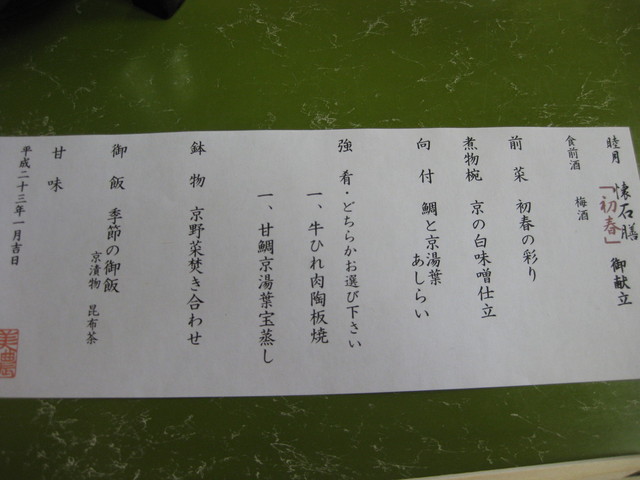 睦月 懐石膳 「初春」 御献立
食前酒 梅酒
前菜 初春の彩り
煮物椀 京の白味噌仕立
向付 鯛と京湯葉
あしらい
強肴・どちらかお選び下さい
一、牛ひれ肉陶板焼
一、甘鯛京湯葉宝蒸し
鉢物 京野菜焚き合わせ
御飯 季節の御飯
京漬物 昆布茶
甘味
平成二十三年一月吉日
美濃